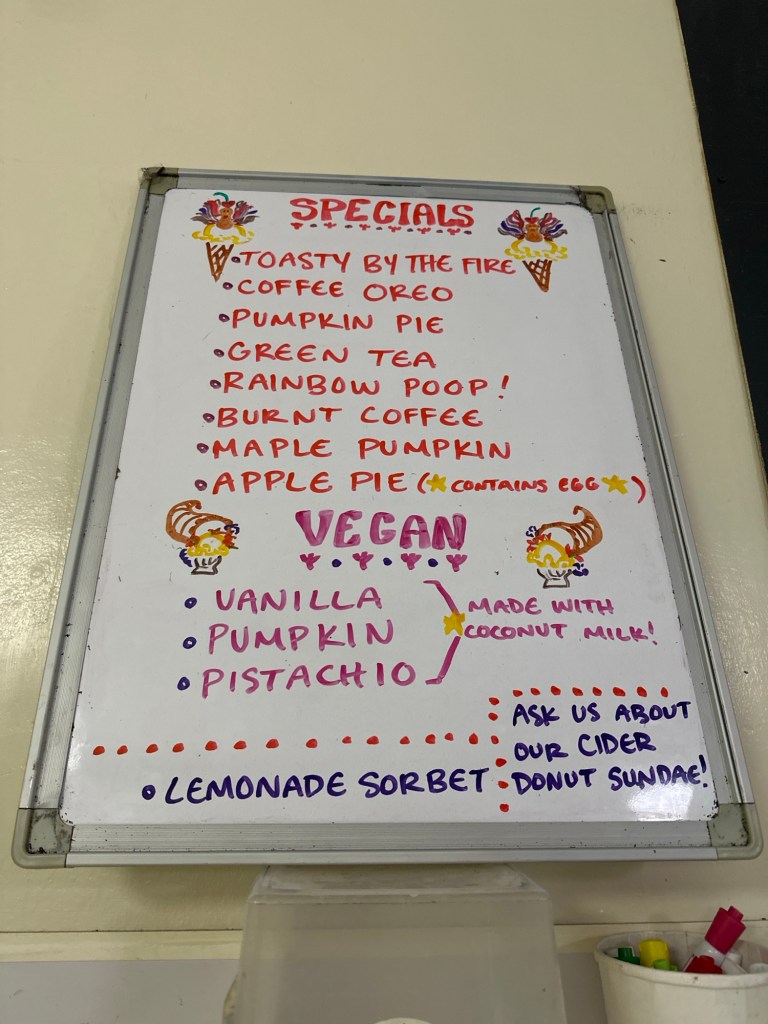 SPECIALS
• TOASTY BY THE FIRE
• COFFEE OREO
• PUMPKIN PIE
• GREEN TEA
• RAINBOW POOP!
• BURNT COFFEE
• MAPLE PUMPKIN
• APPLE PIE (★ CONTAINS EGG ★)
VEGAN
• VANILLA
• PUMPKIN
• PISTACHIO
MADE WITH
★ COCONUT MILK!
• LEMONADE SORBET
ASK US ABOUT
OUR CIDER
DONUT SUNDAE!